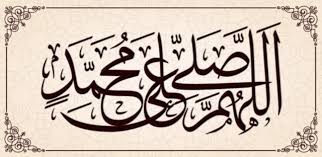 اللهم صَلِّ عَلَى مُحَمَّدٍ